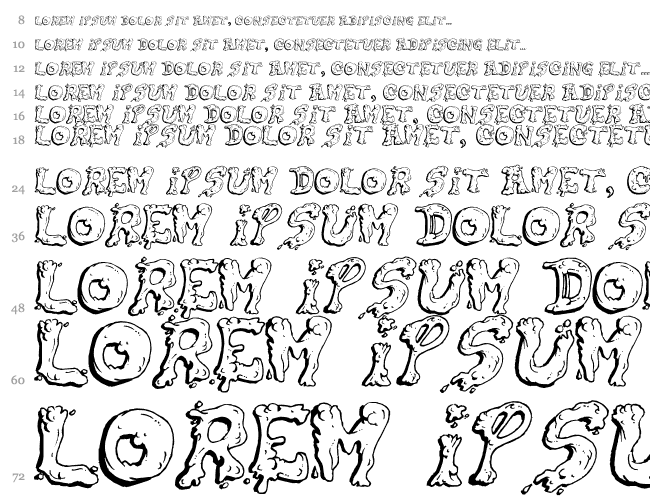 8 LOREM IPSUM DOLOR SIT AMET, CONSECTETUER ADIPISCING ELIT...
10 LOREM IPSUM DOLOR SIT AMET, CONSECTETUER ADIPISCING ELIT...
12 LOREM IPSUM DOLOR SIT AMET, CONSECTETUER ADIPISCING ELIT...
14 LOREM IPSUM DOLOR SIT AMET, CONSECTETUER ADIPISC
16 LOREM IPSUM DOLOR SIT AMET, CONSECTETUER A
18 LOREM IPSUM DOLOR SIT AMET, CONSECTETU
24 LOREM IPSUM DOLOR SIT AMET, C
36 LOREM IPSUM DOLOR S
48 LOREM IPSUM DO
60 LOREM IPSUM
72 LOREM IPSU